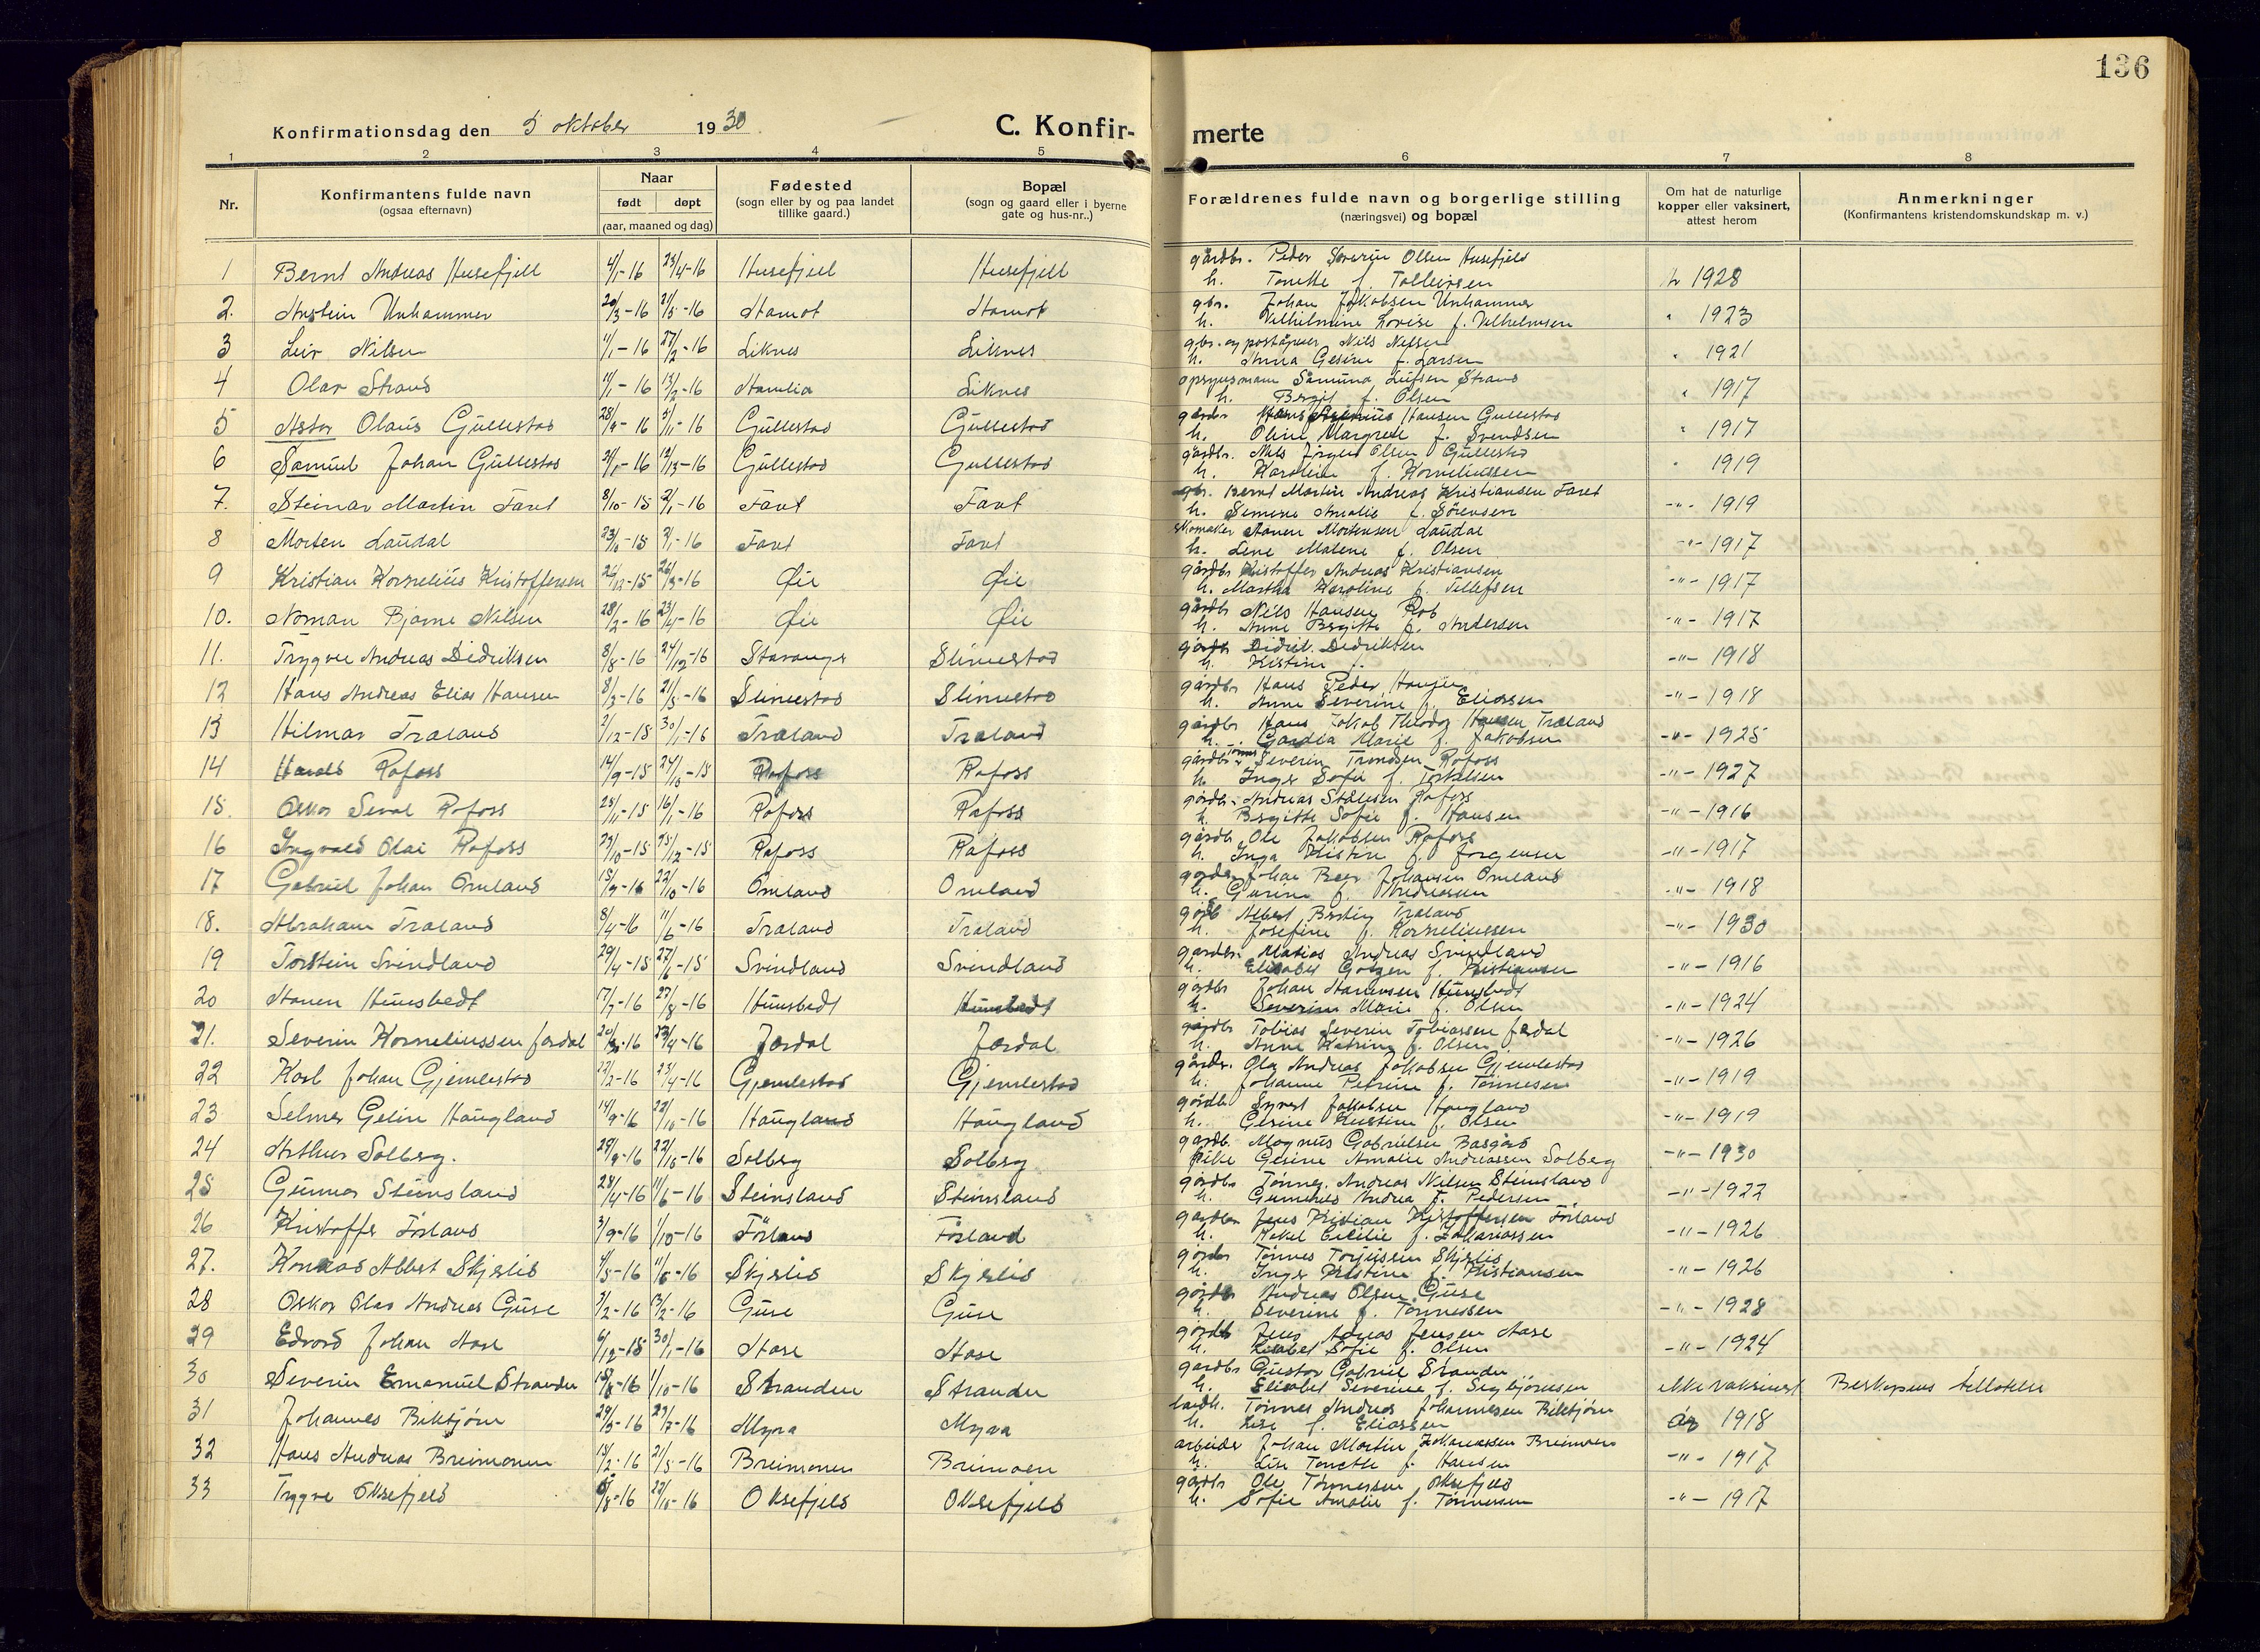 136
Konfirmationsdag den 5 oktober 1930
C. Konfir-
merte
1 2 3 4 5 6 7 8
Nr.
Konfirmantens fulde navn
(ogsaa efternavn)
Naar
født døpt
(aar, maaned og dag)
Fødested
(sogn eller by og paa landet
tillike gaard.)
Bopæl
(sogn og gaard eller i byerne
gate og hus-nr..)
Forældrenes fulde navn og borgerlige stilling
(næringsvei) og bopæl
Om hat de naturlige
kopper eller vaksinert,
attest herom
Anmerkninger
(Konfirmantens kristendomskundskap m. v.)
1 Bernt Andreas Husefjell 4/1-16 23/4-16 Husefjell Husefjell gårdbr. Peder Severin Olsen Husefjeld
h. Tonette f. Tolleivsen 1928
2. Anstein Unhammer 20/3-16 21/5-16 gbr. Johan Jakobsen Unhammer
h. Vilhilmine Lovise f. Vilhelmsen " 1923
3 Leiv Nilsen 4/1-16 27/2-16 Liknes Liknes gbr. og poståpner Nils Nilsen
h. Anna Gesine f. Larsen " 1921
4 Olav Strand 11/1-16 13/2-16 Hamlia Liknes opsynsmann Strand
h. Bergit f. Olsen " 1917
5 Astor Olaus Gullestad 28/9-16 5/11-16 Gullestad Gullestad gårdbr Hansen Gullestad
h. Oline Margrete f. Svendsen " 1917
6 Samuel Johan Gullestad Gullestad Gullestad gårdbr. Nils Jörgen Olsen Gullestad
h. Karoline f. Korneliussen " 1919
7. Steinar Martin Faret 8/10-15 2/1-16 Faret Faret gbr. Bernt Martin Andreas Kristiansen Faret
h. Semine Amalie f. Sörensen -"- 1919
8 Morten Laudal 2/1-16 Faret Faret skomaker Aanen Mortensen Laudal
h. Lene Malene f. Olsen -"- 1917
9 Kristian Kornelius Kristoffersen 26/12-15 26/3-16 Øie Øie gårdbr Kristoffer Andreas Kristiansen
h. Martha Karoline f. Tellefsen -"- 1917
10. Norman Bjarne Nilsen 28/2-16 23/4-16 Øie Øie gårdbr Nils Hansen Rob
h. Anne Bergitte f. Andersen -"- 1917
11. Trygve Andreas Didriksen 8/8-16 24/12-16 Stavanger Slimestad gårdbr Didrik Didriksen
h. Kistine f. -"- 1918
12 Hans Andreas Elias Hansen 8/3-16 21/5-16 Slimestad Slimestad gårdbr Hans Peder Hansen
h. Anne Severine f. Eliassen -"- 1918
13 Hilmar Træland 2/12-15 30/1-16 Træland Træland gårdbr Hans Jakob Theodor Hansen Træland
h. Marie f. Jakobsen -"- 1925
14 Harald Rafoss 14/9-15 24/10-15 Rafoss Rafoss gårdbr Tönnes Severin Trondsen Rafoss
h. Inger Sofie f. Torkelsen -"- 1927
15. Oskar Seval Rafoss 25/11-15 16/1-16 Rafoss Rafoss gårdbr. Andreas Stålesen Rafoss
h. Bergitte Sofie f. Hansen -"- 1916
16 Ingvald Olai Rafoss 23/10-15 25/12-15 Rafoss Rafoss gårdb. Ole Jakobsen Rafoss
h. Inga Kistine f. Jörgensen -"- 1917
17 Gabriel Johan Omland 15/9-16 22/10-16 Omland Omland Johan Johansen Omland
h. Gurine f. Andreassen -"- 1918
18. Abraham Træland 8/4-16 11/6-16 Træland Træland Albert Træland
h. Josefine f. Korneliussen -"- 1930
19 Torstein Svindland 29/4-15 27/6-15 Svindland Svindland gårdbr. Matias Andreas Svindland
h. Elisabet f. Kristiansen -"- 1916
20 Hanen Hunsbedt 17/7-16 27/8-16 Hunsbedt Hunsbedt gårdbr Johan Hunsbedt
h. Severine Marie f. Olsen -"- 1924
21. Severin Korneliussen Jærdal 23/4-16 Jærdal Jærdal gårdbr Tobias Severin Tobiassen Jærdal
h. Anne Katrine f. Olsen -"- 1926
22 Karl Johan Gjemlestad 22/2-16 23/4-16 Gjemlestad Gjemlestad gårdbr. Ola Andreas Jakobsen Gjemlestad
h. Johanne Petrine f. Tönnesen -"- 1919
23 Selmer Gelin Haugland 14/9-16 22/10-16 Haugland Haugland gårdb Syvert Jakobsen Haugland
h. Gesine Kristine f. Olsen -"- 1919
24 Arthur Solberg. 29/9-16 22/10-16 Solberg Solberg gårdb. Magnus Gabrielsen Basgård
pike Gesine Amalie Andreassen Solberg -"- 1930
25 Gunnar Steinsland 28/4-16 11/6-16 Steinsland Steinsland gårdbr Tönnes Andreas Nilsen Steinsland
h. Andrea f. Pedersen -"- 1922
26 Kristoffer Förland 3/9-16 1/10-16 Förland Förland gårdbr Jens Kristian Kristoffersen Förland
h. Rakel Cicilie f. Zakariassen -"- 1926
27. Konrad Albert Skjerlid 4/5-16 11/6-16 Skjerlid Skjerlid gårdbr Tönnes Torjussen Skjerlid
h. Inger Kristine f. Kristiansen -"- 1926
28 Oskar Olav Andreas Guse 2/2-16 13/2-16 Guse Guse gårdbr Andreas Olsen Guse
h. Severine f. Tönnessen -"- 1928
29 Edvard Johan Aase 6/12-15 30/1-16 Aase Aase gårdb Jens Adreas Jensen Aase
h. Lisabet Sofie f. Olsen -"- 1924
30 Severin Emanuel Stranden 15/8-16 1/10-16 Stranden Stranden gårdbr Gustav Gabriel Stranden
h. Elisabet Severine f. Sigbjörnsen ikke vaksinert Biskopens tillatelse
31 Johannes Birktjörn Myra Myra Tönnes Andreas Johannesen Birktjörn
h. Lise f. Eliassen år 1918
32 Hans Andreas Breimoen 13/2-16 21/5-16 Breimoen Breimoen arbeider Johan Martin Zakariassen Breimoen
h. Lise Tonette f. Hansen -"- 1917
33 Trygve Oksefjeld 22/10-16 Oksefjeld Oksefjeld gårdbr Ole Tönnessen Oksefjeld
h. Sofie Amalie f. Tönnessen -"- 1917